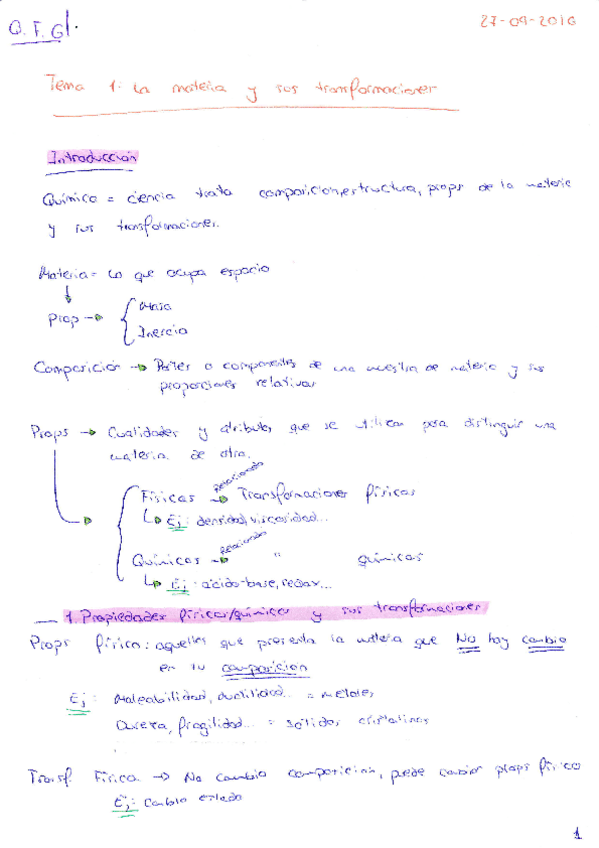 Q.F.G1.
27-09-2016
Tema 1: La materia y sus transformaciones
Introducción
Química = ciencia trata composición, estructura, props de la materia
y sus transformaciones.
Materia = Lo que ocupa espacio
Prop → Masa
Inercia
Composición → Partes o componentes de una muestra de materia y sus
proporciones relativas
Props → Cualidades y atributos que se utilizan para distinguir una
materia de otra.
Físicas Relacionado → Transformaciones físicas
↳ Ej: densidad, viscosidad...
Químicas Relacionado → " químicas
↳ Ej: acido-base, redox...
1. Propiedades físicas/químicas y sus transformaciones
Props física: aquellas que presenta la materia que No hay cambio
en su composición
Ej: Maleabilidad, ductilidad... = metales
Dureza, fragilidad... = sólidos cristalinos
Transf. Física → No cambia composición, puede cambiar props físico
Ej: cambio estado
1